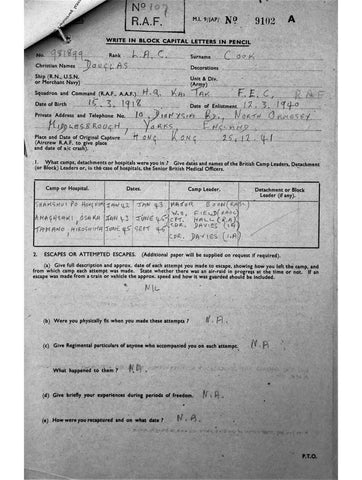 No 107
R.A.F.
M.I. 9/JAP/ No 9102 A
WRITE IN BLOCK CAPITAL LETTERS IN PENCIL
No. 981899 Rank L.A.C. Surname COOK
Christian Names DOUGLAS Decorations
Ship (R.N., U.S.N. or Merchant Navy) Unit & Div. (Army)
Squadron and Command (R.A.F., A.A.F.) H.Q. KAI TAK F.E.C, RAF
Date of Birth 15.3.1918 Date of Enlistment 12.3.1940
Private Address and Telephone No. 10, DIONYSIA RD., NORTH ORMESBY
MIDDLESBROUGH, YORKS, ENGLAND
Place and Date of Original Capture HONG KONG 25.12.41
(Aircrew R.A.F. to give place
and date of air crash).
1. What camps, detachments or hospitals were you in? Give dates and names of the British Camp Leaders, Detachment
(or Block) Leaders or, in the case of hospitals, the Senior British Medical Officers.
Camp or Hospital. Dates. Camp Leader. Detachment or Block Leader (if any).
SHAMSHUI PO JAN 42 JAN 43 MAJOR BOON
AMAGASAKI, OSAKA JAN 43 JUNE 45 W.O. FIELD
HALL
TAMANO, HIROSHIMA JUNE 45 SEPT 45 CDR. DAVIES
CDR. DAVIES
2. ESCAPES OR ATTEMPTED ESCAPES. (Additional paper will be supplied on request if required).
(a) Give full description and approx. date of each attempt you made to escape, showing how you left the camp, and
from which camp each attempt was made. State whether there was an air-raid in progress at the time or not. If an
escape was made from a train or vehicle the approx. speed and how it was guarded should be included.
NIL
(b) Were you physically fit when you made these attempts? N.A.
(c) Give Regimental particulars of anyone who accompanied you on each attempt. N.A
What happened to them? N.A.
(d) Give briefly your experiences during periods of freedom. N.A.
(e) How were you recaptured and on what date? N.A.
P.T.O.